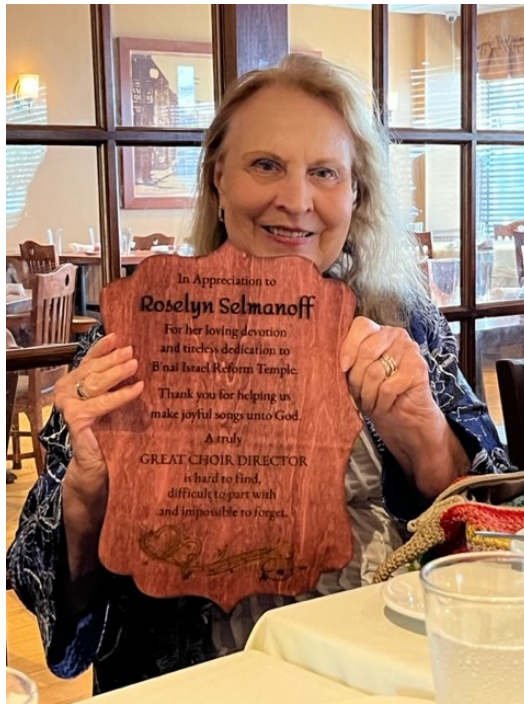 In Appreciation to
Roselyn Selmanoff
For her loving devotion
and tireless dedication to
B'nai Israel Reform Temple.
Thank you for helping us
make joyful songs unto God.
A truly
GREAT CHOIR DIRECTOR
is hard to find,
difficult to part with
and impossible to forget.